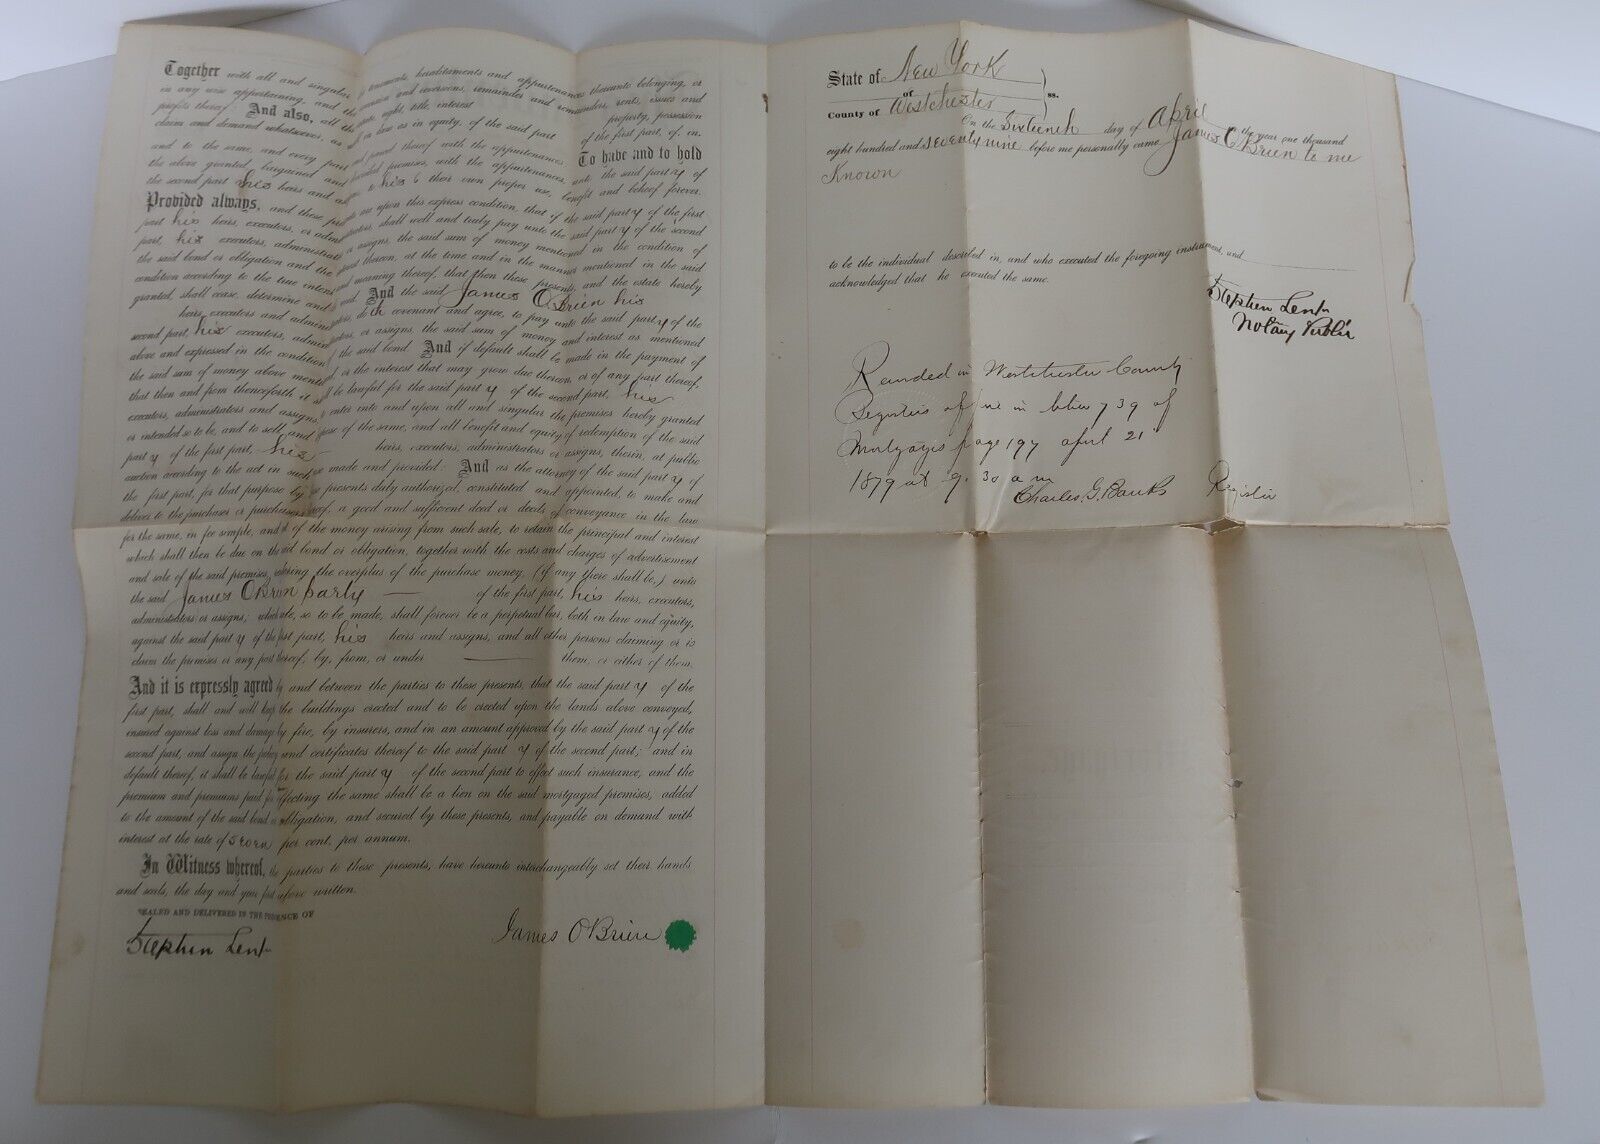 Together with all and singular tenements, hereditaments and appurtenances thereunto belonging, or
in any wise appertaining, and the reversion and reversions, remainder and remainders, rents, issues and
profits thereof. And also, all the estate, right, title, interest property, possession
claim and demand whatsoever, as in law as in equity, of the said part of the first part, of, in,
and to the same, and every part thereof with the appurtenances To have and to hold
the above granted, bargained and premises, with the appurtenances, unto the said party of
the second part his heirs and to his & their own proper use, benefit and behoof forever.
Provided always, and these are upon this express condition, that if the said party of the first
part his heirs, executors, or shall well and truly pay unto the said party of the second
part, his executors, or assigns, the said sum of money mentioned in the condition of
the said bond or obligation and the thereon, at the time and in the manner mentioned in the said
condition according to the true intent and meaning thereof, that then these presents, and the estate hereby
granted, shall cease, determine and And the said James O'Brien his
heirs, executors and doth covenant and agree, to pay unto the said party of the
second part, his executors, or assigns, the said sum of money and interest as mentioned
above and expressed in the condition the said bond. And if default shall be made in the payment of
the said sum of money above or the interest that may grow due thereon, or of any part thereof,
that then and from thenceforth it be lawful for the said party of the second part, his
executors, administrators and assigns, enter into and upon all and singular the premises hereby granted
or intended so to be, and to sell and of the same, and all benefit and equity of redemption of the said
party of the first part, his heirs, executors, administrators or assigns, therein, at public
auction according to the act in such made and provided: And as the attorney of the said party of
the first part, for that purpose by presents duly authorized, constituted and appointed, to make and
deliver to the purchaser or a good and sufficient deed or deeds of conveyance in the law
for the same, in fee simple, and of the money arising from such sale, to retain the principal and interest
which shall then be due on the bond or obligation, together with the costs and charges of advertisement
and sale of the said premises, the overplus of the purchase money, (if any there shall be,) unto
the said James O'Brien party — of the first part, his heirs, executors,
administrators or assigns; so to be made, shall forever be a perpetual bar, both in law and equity,
against the said party of the first part, his heirs and assigns, and all other persons claiming or to
claim the premises or any part thereof, by, from, or under — them, or either of them.
And it is expressly agreed by and between the parties to these presents, that the said party of the
first part, shall and will keep the buildings erected and to be erected upon the lands above conveyed,
insured against loss and damage by fire, by insurers, and in an amount approved by the said party of the
second part, and assign the policy and certificates thereof to the said party of the second part; and in
default thereof, it shall be lawful for the said party of the second part to effect such insurance, and the
premium and premiums paid for effecting the same shall be a lien on the said mortgaged premises, added
to the amount of the said bond or obligation, and secured by these presents, and payable on demand with
interest at the rate of seven per cent. per annum.
In Witness whereof, the parties to these presents, have hereunto interchangeably set their hands
and seals, the day and year first above written.
SEALED AND DELIVERED IN THE PRESENCE OF
Stephen Lent
James O'Brien
State of New York
of
County of Westchester ss.
On the Sixteenth day of April the year one thousand
eight hundred and seventy nine before me personally came James O'Brien to me
Known
to be the individual described in, and who executed the foregoing instrument, and
acknowledged that he executed the same.
Stephen Lent
Notary Public
Recorded in Westchester County
Registers office in Liber 739 of
Mortgages page 197 April 21
1879 at 9.30 a m
Charles G. Banks Register